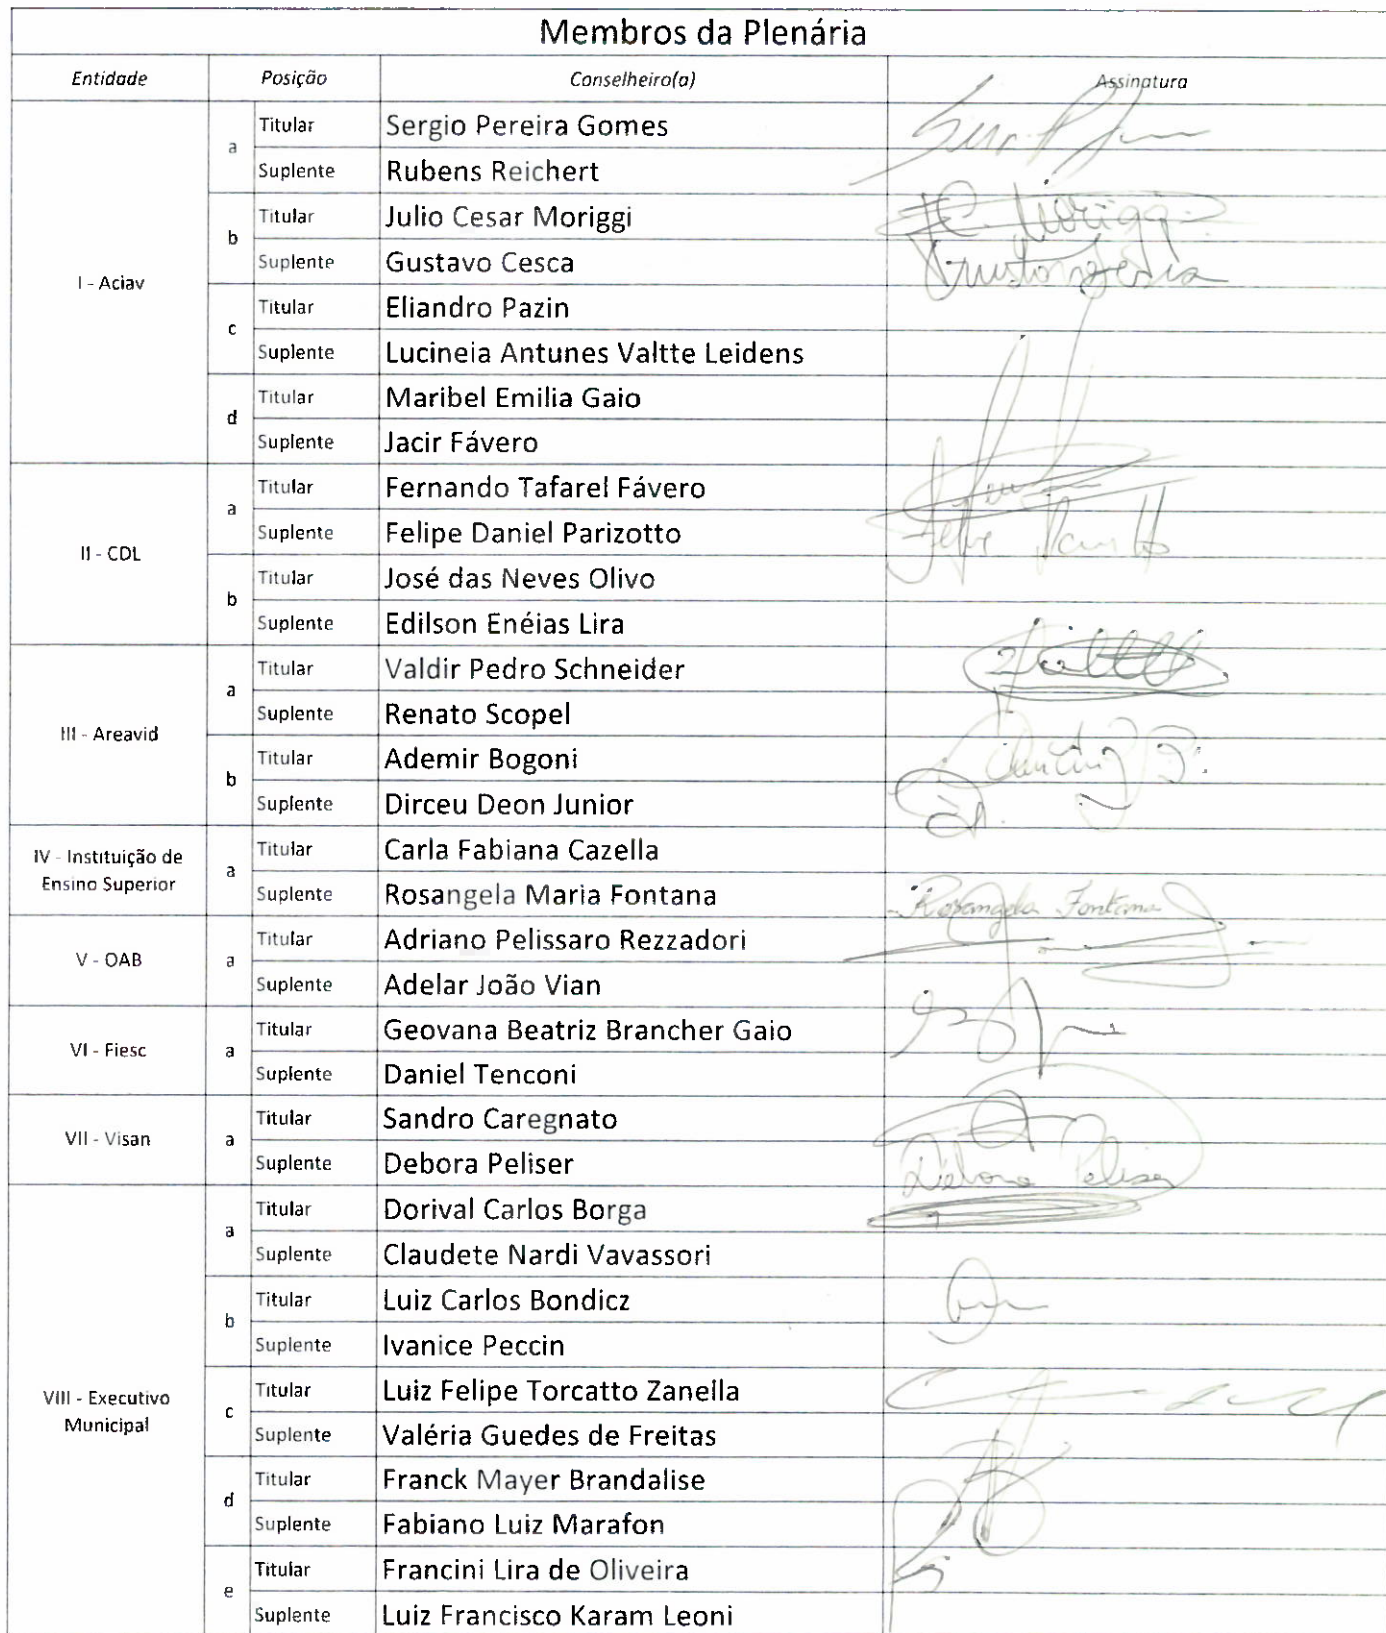 Membros da Plenária
Entidade Posição Conselheiro(a) Assinatura
I - Aciav
a Titular Sergio Pereira Gomes
Suplente Rubens Reichert
b Titular Julio Cesar Moriggi
Suplente Gustavo Cesca
c Titular Eliandro Pazin
Suplente Lucineia Antunes Valtte Leidens
d Titular Maribel Emilia Gaio
Suplente Jacir Fávero
II - CDL
a Titular Fernando Tafarel Fávero
Suplente Felipe Daniel Parizotto
b Titular José das Neves Olivo
Suplente Edilson Enéias Lira
III - Areavid
a Titular Valdir Pedro Schneider
Suplente Renato Scopel
b Titular Ademir Bogoni
Suplente Dirceu Deon Junior
IV - Instituição de
Ensino Superior
a Titular Carla Fabiana Cazella
Suplente Rosangela Maria Fontana Rosangela Fontana
V - OAB
a Titular Adriano Pelissaro Rezzadori
Suplente Adelar João Vian
VI - Fiesc
a Titular Geovana Beatriz Brancher Gaio
Suplente Daniel Tenconi
VII - Visan
a Titular Sandro Caregnato
Suplente Debora Peliser Débora Peliser
VIII - Executivo
Municipal
a Titular Dorival Carlos Borga
Suplente Claudete Nardi Vavassori
b Titular Luiz Carlos Bondicz
Suplente Ivanice Peccin
c Titular Luiz Felipe Torcatto Zanella
Suplente Valéria Guedes de Freitas
d Titular Franck Mayer Brandalise
Suplente Fabiano Luiz Marafon
e Titular Francini Lira de Oliveira
Suplente Luiz Francisco Karam Leoni